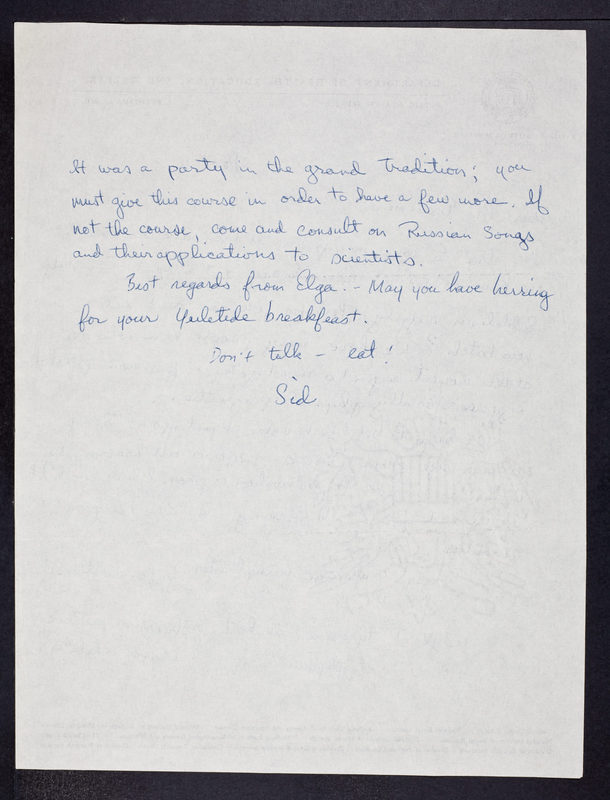 It was a party in the grand tradition; you
must give this course in order to have a few more. If
not the course, come and consult on Russian Songs
and their applications to scientists.
Best regards from Elga. - May you have herring
for your Yuletide breakfeast.
Don't talk - eat!
Sid